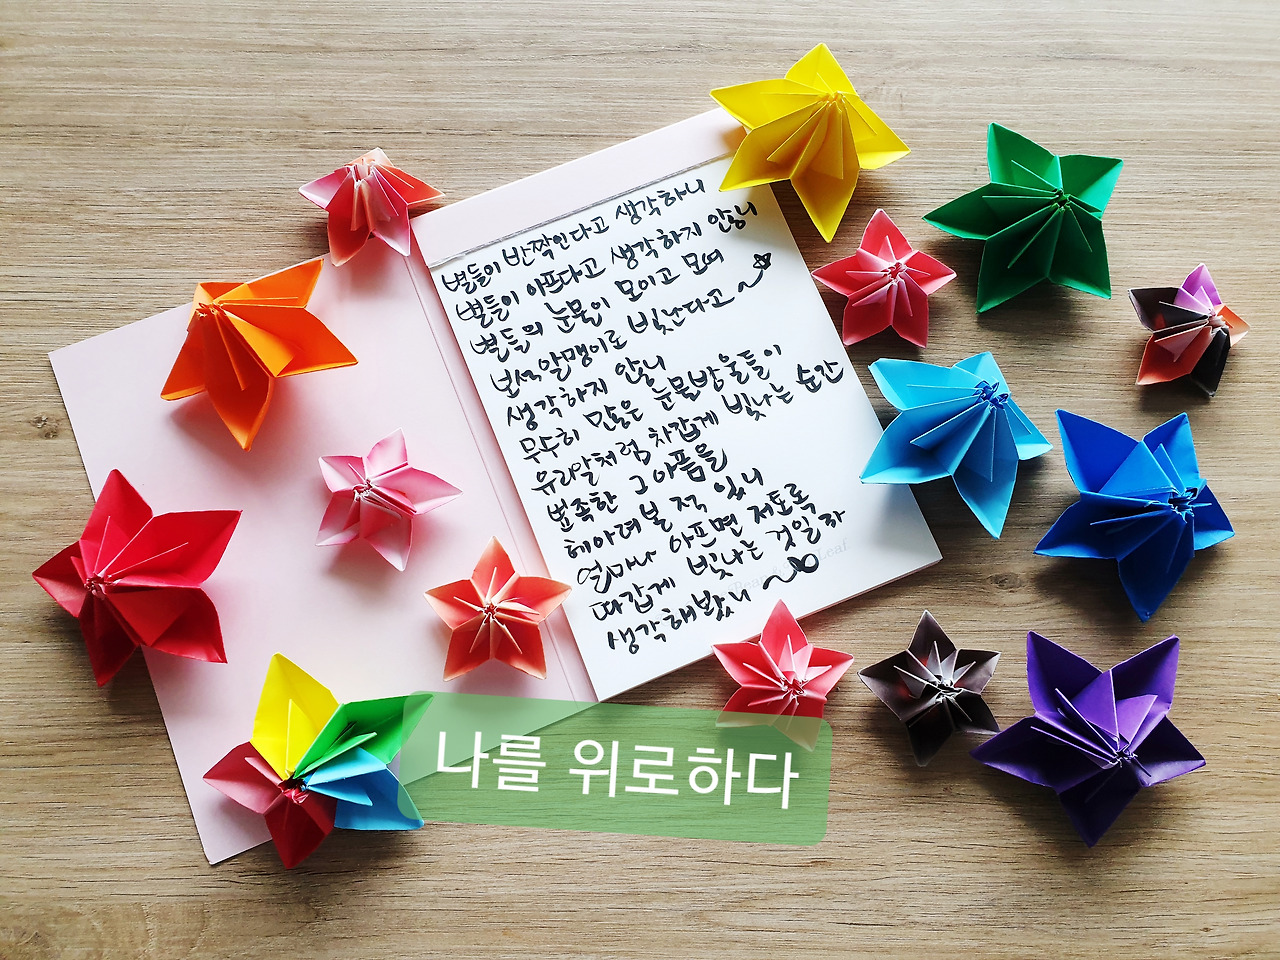 별들이 반짝인다고 생각하니
별들이 아프다고 생각하지 않니
별들의 눈물이 모이고 모여
보석 알맹이로 빛난다고
생각하지 않니
무수히 많은 눈물방울들이
유리알처럼 차갑게 빛나는 순간
뾰족한 그 아픔을
헤아려 본 적 있니
얼마나 아프면 저토록
따갑게 빛나는 것일까
생각해봤니
Leaf
나를 위로하다